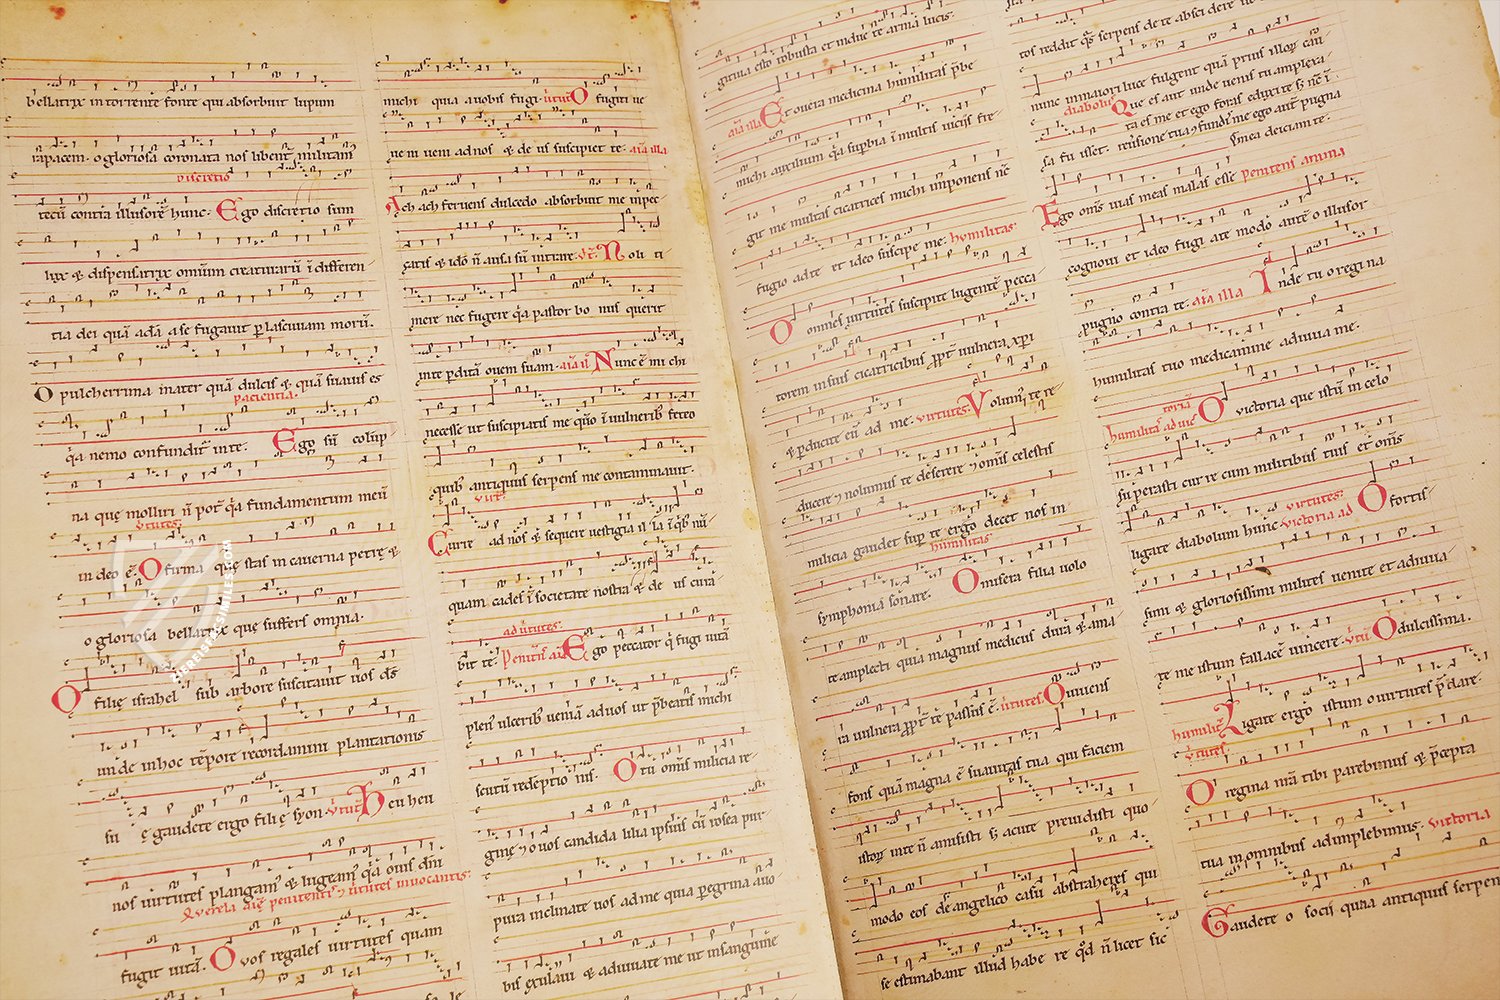 bellatrix in torrente fonte qui absorbuit lupum
rapacem. o gloriosa coronata nos libent̄ militam᷒
discretio
tecū contra illusorē hunc. Ego discretio sum
lux & dispensatrix omīum creaturarū ī differen
tia dei quā adā a se fugauit p lasciuiam morū.
O pulcherrima mater quā dulcis & quā suauis es
pacientia.
q̄a nemo confundit᷒ in te. Ego sū colūp
na quę molliri n̄ pot̄ q̄a fundamentum meū
v̄tutes
in deo ē. O firma quę stas in cauerna petrę &
o gloriosa bellatrix quę suffers omnia.
O filię israhel sub arbore suscitauit uos d̄s
unde in hoc tēpore recordamini plantationis
su ę gaudete ergo filię syon. v̄tut̄ Heu heu
nos uirtutes plangam᷒ & lugeam᷒ q̄a ouis dn̄i
Querela aīę penitentis 7 v̄tutes inuocantis.
fugit uitā. O uos regales uirtutes quam
michi quia a uobis fugi. v̄tut̄ O fugiti ue
ue ni ueni ad nos & de us suscipiet te. aīa illa
Ach ach feruens dulcedo absorbuit me in pec
catis & idō n̄ ausa sū intrare. v̄t̄. Noli ti
mere nec fugere q̄a pastor bo nus querit
in te pditā ouem suam. aīa il̄ Nunc ē mi chi
necesse ut suscipiatis me qm̄o ī uulnerib᷒ feteo
quib᷒ antiquus serpens me contaminauit.
virt̄.
Curre ad nos & sequere uestigia il la ī q̄b᷒ nū
quam cades ī societate nostra & de us cura
ad v̄tutes.
bit te. Penitn̄s aīa Ego peccator q̄ fugi uitā
plen᷒ ulcerib᷒ ueniā ad uos ut p̄beatis michi
scutū redēptio nis. O tu om̄is milicia re
ginę 7 o uos candida lilia ipsius cū rosea pur
pura inclinate uos ad me quia peregrina a uo
bis exulaui & adiuuate me ut in sanguine
gitiua esto robusta et indue te arma lucis.
aīa illa Et o uera medicina humilitas p̄be
michi auxilium q̄a supbia ī multis uiciis fre
git me multas cicatrices michi imponens nc̄
fugio ad te et ideo suscipe me. humilitas.
O omnes uirtutes suscipite lugentē pecca
torem in suis cicatricibus ppt̄ uulnera xp̄i
& pducite eū ad me. virtutes. Volum᷒ te re
ducere 7 nolumus te deserere 7 om̄is celestis
milicia gaudet sup te ergo decet nos in
humilitas
symphonia sonare. O misera filia uolo
te amplecti quia magnus medicus dura & ama
ra uulnera ppt̄ te passus ē. v̄tutes. O uiuens
fons quā magna ē suauitas tua qui faciem
istoꝝ in te n̄ amisisti s; acute preuidisti quo
modo eos de angelico casu abstraheres qui
se estimabant illud habe re qd̄ n̄ licet sic
tos reddit q̄s serpens de te absci dere
nunc in maiori luce fulgent quā prius illoꝝ cau
diabolus Que es aut unde uenis tu amplexa
ta es me et ego foras eduxi te s; nc̄ ī
sa fu isset. reuisione tua 9fundis me ego aut̄ pugna
mea deiciam te.
Ego om̄s uias meas malas esse penitens anima
cognoui et ideo fugi a te modo autē o illusor
pugno contra te. aīa illa Inde tu o regina
humilitas tuo medicamine adiuua me.
humilitas ad vic toriā O victoria que istū in celo
su perasti curre cum militibus tuis et om̄s
virtutes.
ligate diabolum hunc victoria ad O fortis
simi & gloriosissimi milites uenite et adiuua
te me istum fallacē uincere. v̄tut̄ O dulcissima.
humilit̄ Ligate ergo istum o uirtutes p̄clare.
v̄tutes.
O regina nr̄a tibi parebimus & p̄cepta
tua in omnibus adimplebimus. victoria
Gaudete o socii quia antiquus serpen